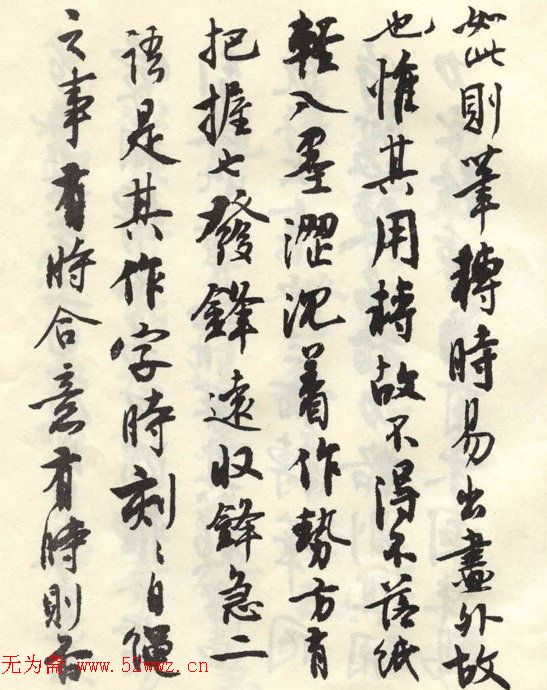 如此則筆轉時易出畫外故
也惟其用轉故不得不落紙
輕入墨澀沉着作勢方有
把握七發鋒遠收鋒急二
語是其作字時刻〻自繩
之事有時合意有時則否
无为斋 www.51wwz.cn